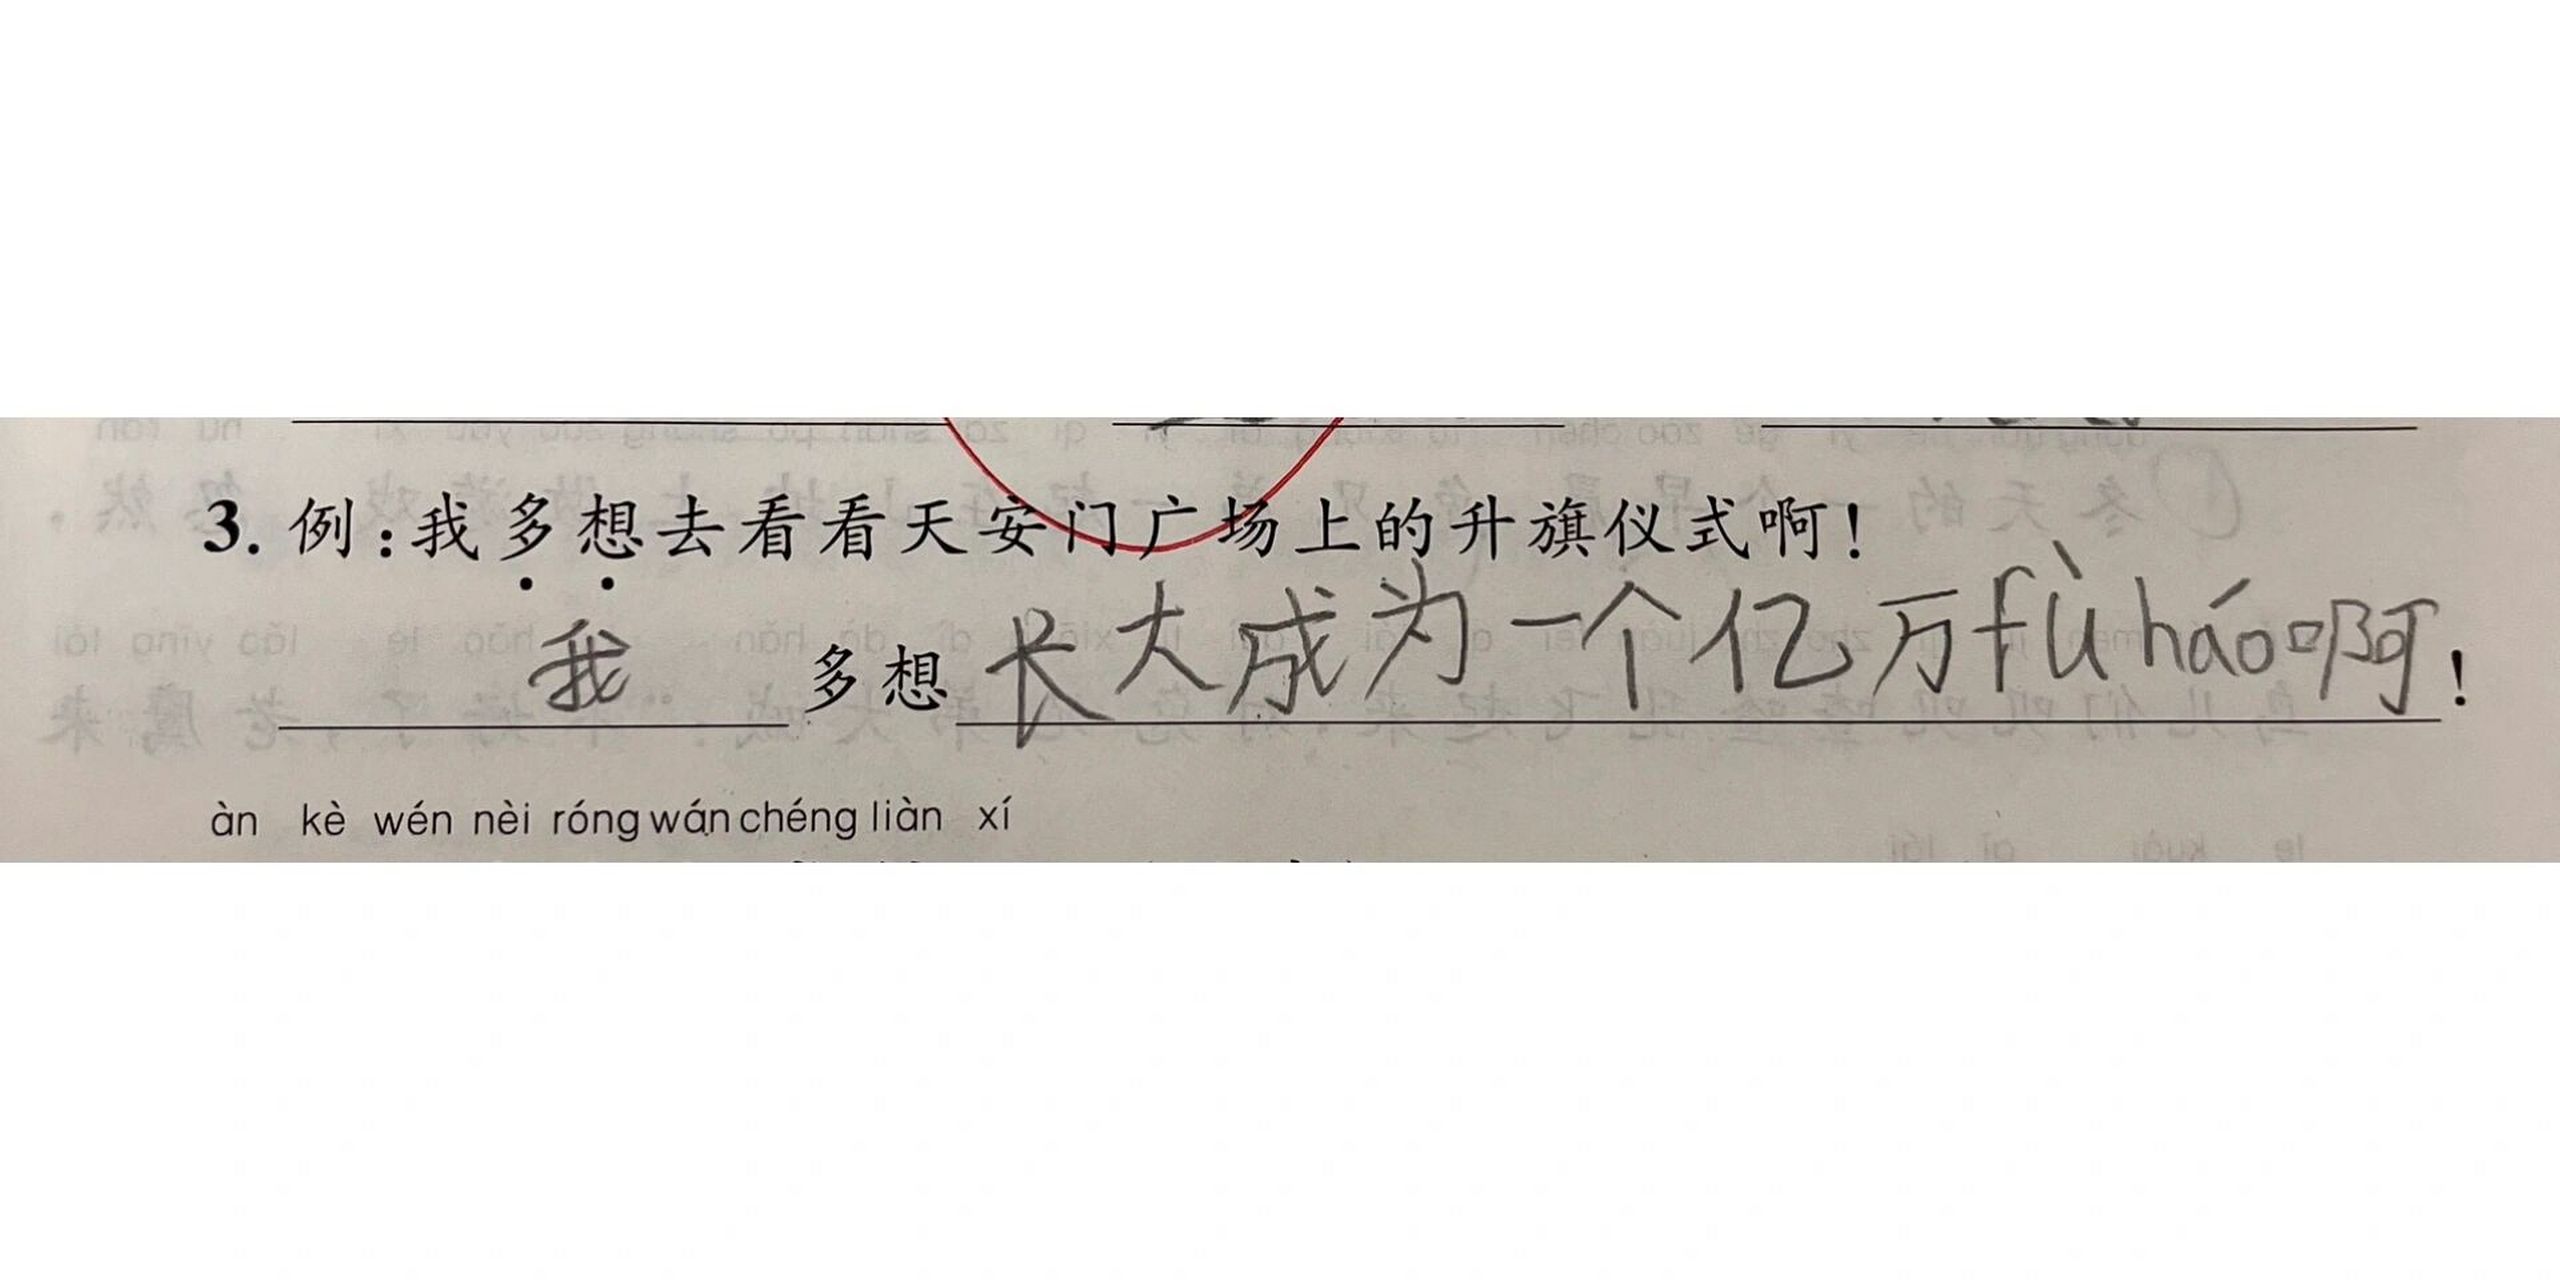 3. 例：我多想去看看天安门广场上的升旗仪式啊！
我 多想 长大成为一个亿万fù háo啊！
àn kè wén nèi róng wán chéng liàn xí